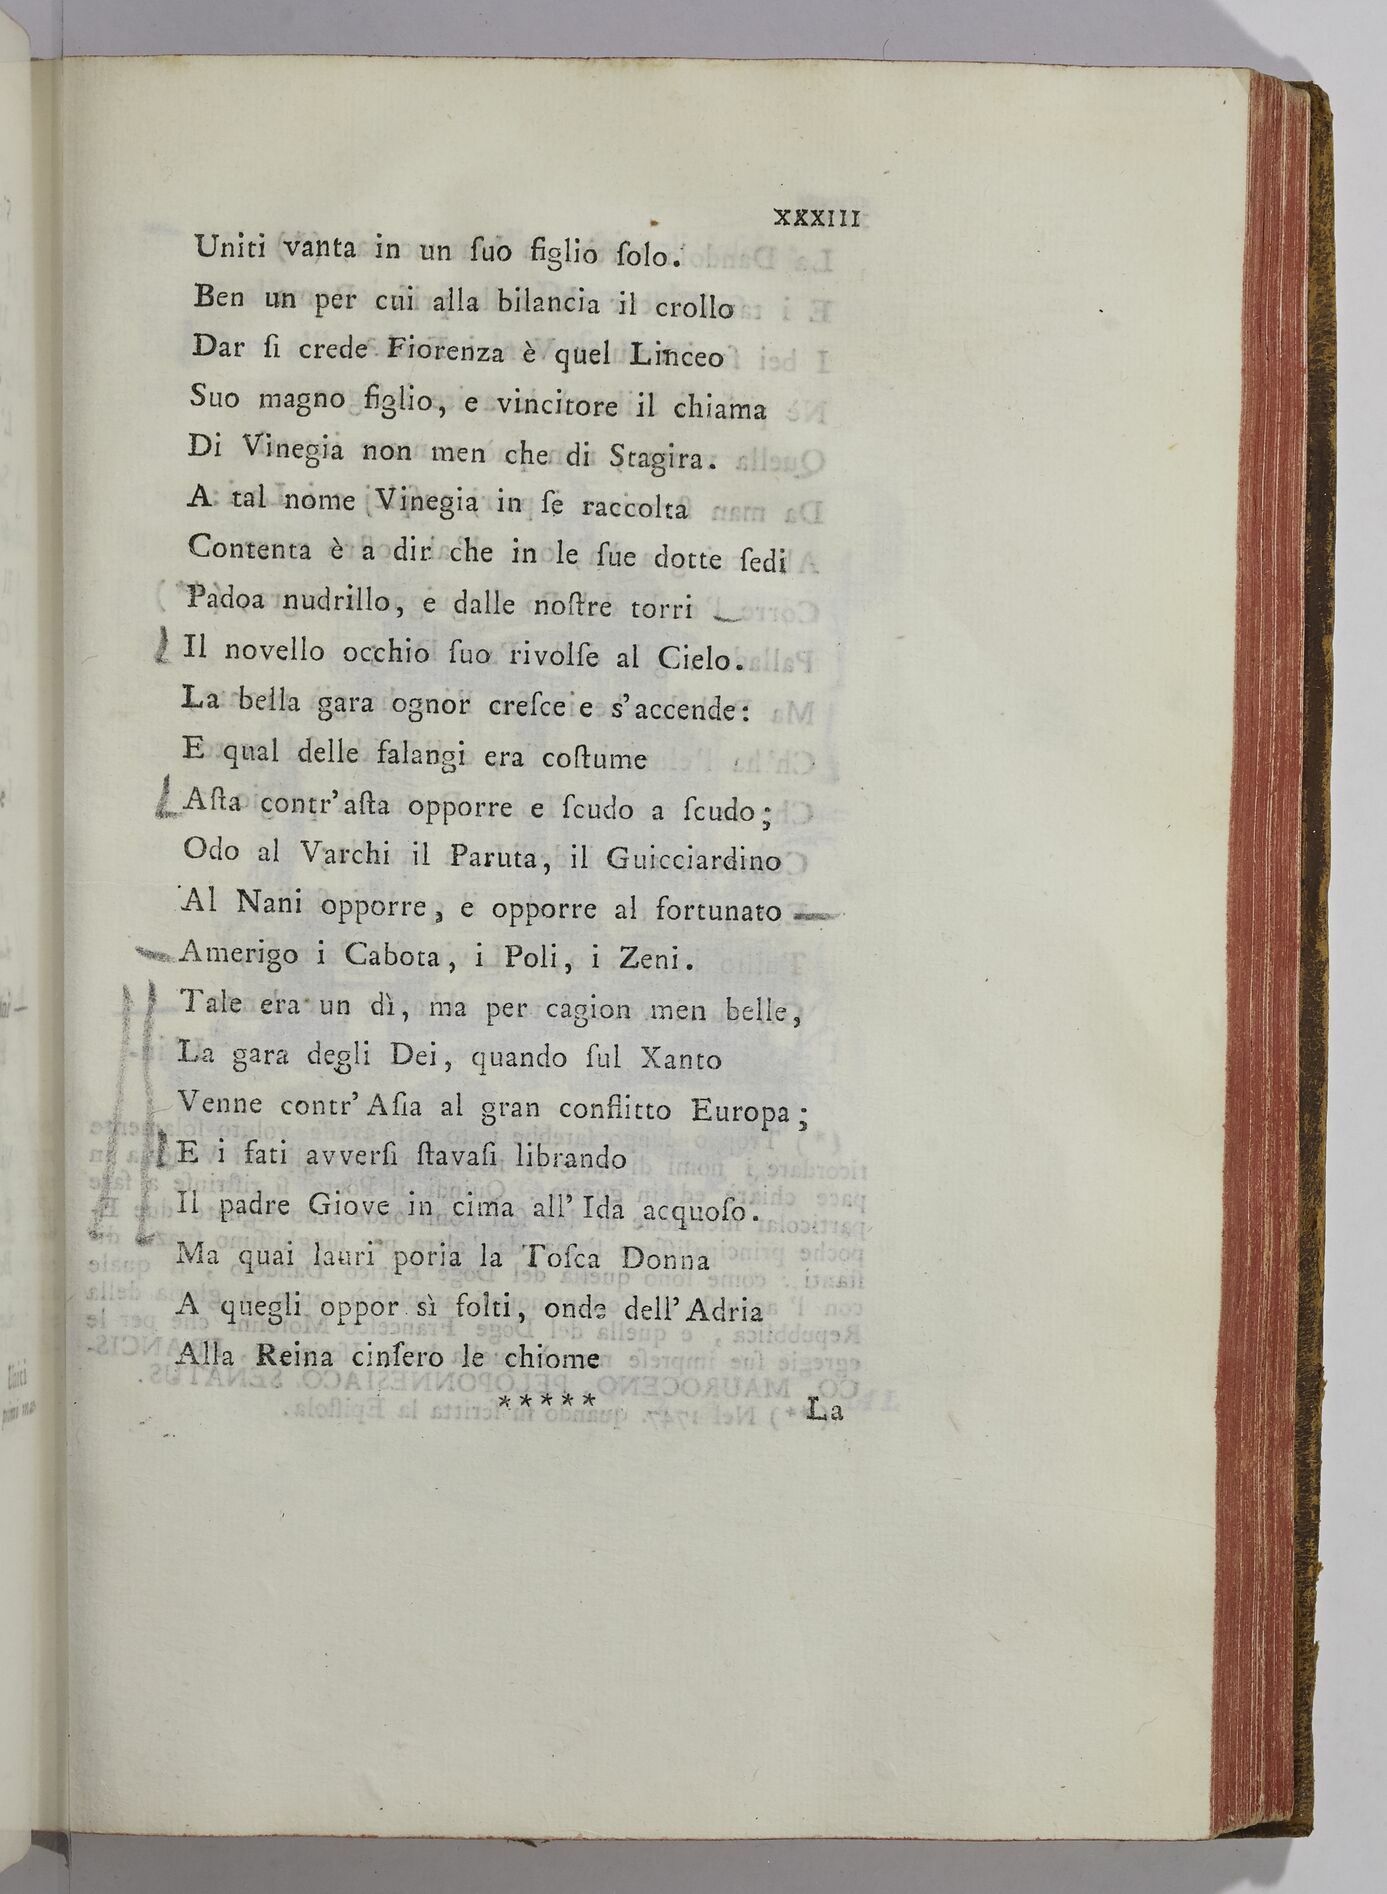 XXXIII
Uniti vanta in un ſuo figlio ſolo.
Ben un per cui alla bilancia il crollo
Dar ſi crede Fiorenza è quel Linceo
Suo magno figlio, e vincitore il chiama
Di Vinegia non men che di Stagira.
A tal nome Vinegia in ſe raccolta
Contenta è a dir che in le ſue dotte ſedi
Padoa nudrillo, e dalle noſtre torri
Il novello occhio ſuo rivolſe al Cielo.
La bella gara ognor creſce e s'accende:
E qual delle falangi era coſtume
Aſta contr'aſta opporre e ſcudo a ſcudo;
Odo al Varchi il Paruta, il Guicciardino
Al Nani opporre, e opporre al fortunato
Amerigo i Cabota, i Poli, i Zeni.
Tale era un dì, ma per cagion men belle,
La gara degli Dei, quando ſul Xanto
Venne contr'Aſia al gran conflitto Europa;
E i fati avverſi ſtavaſi librando
Il padre Giove in cima all'Ida acquoſo.
Ma quai lauri poria la Toſca Donna
A quegli oppor sì folti, onde dell'Adria
Alla Reina cinſero le chiome
***** La